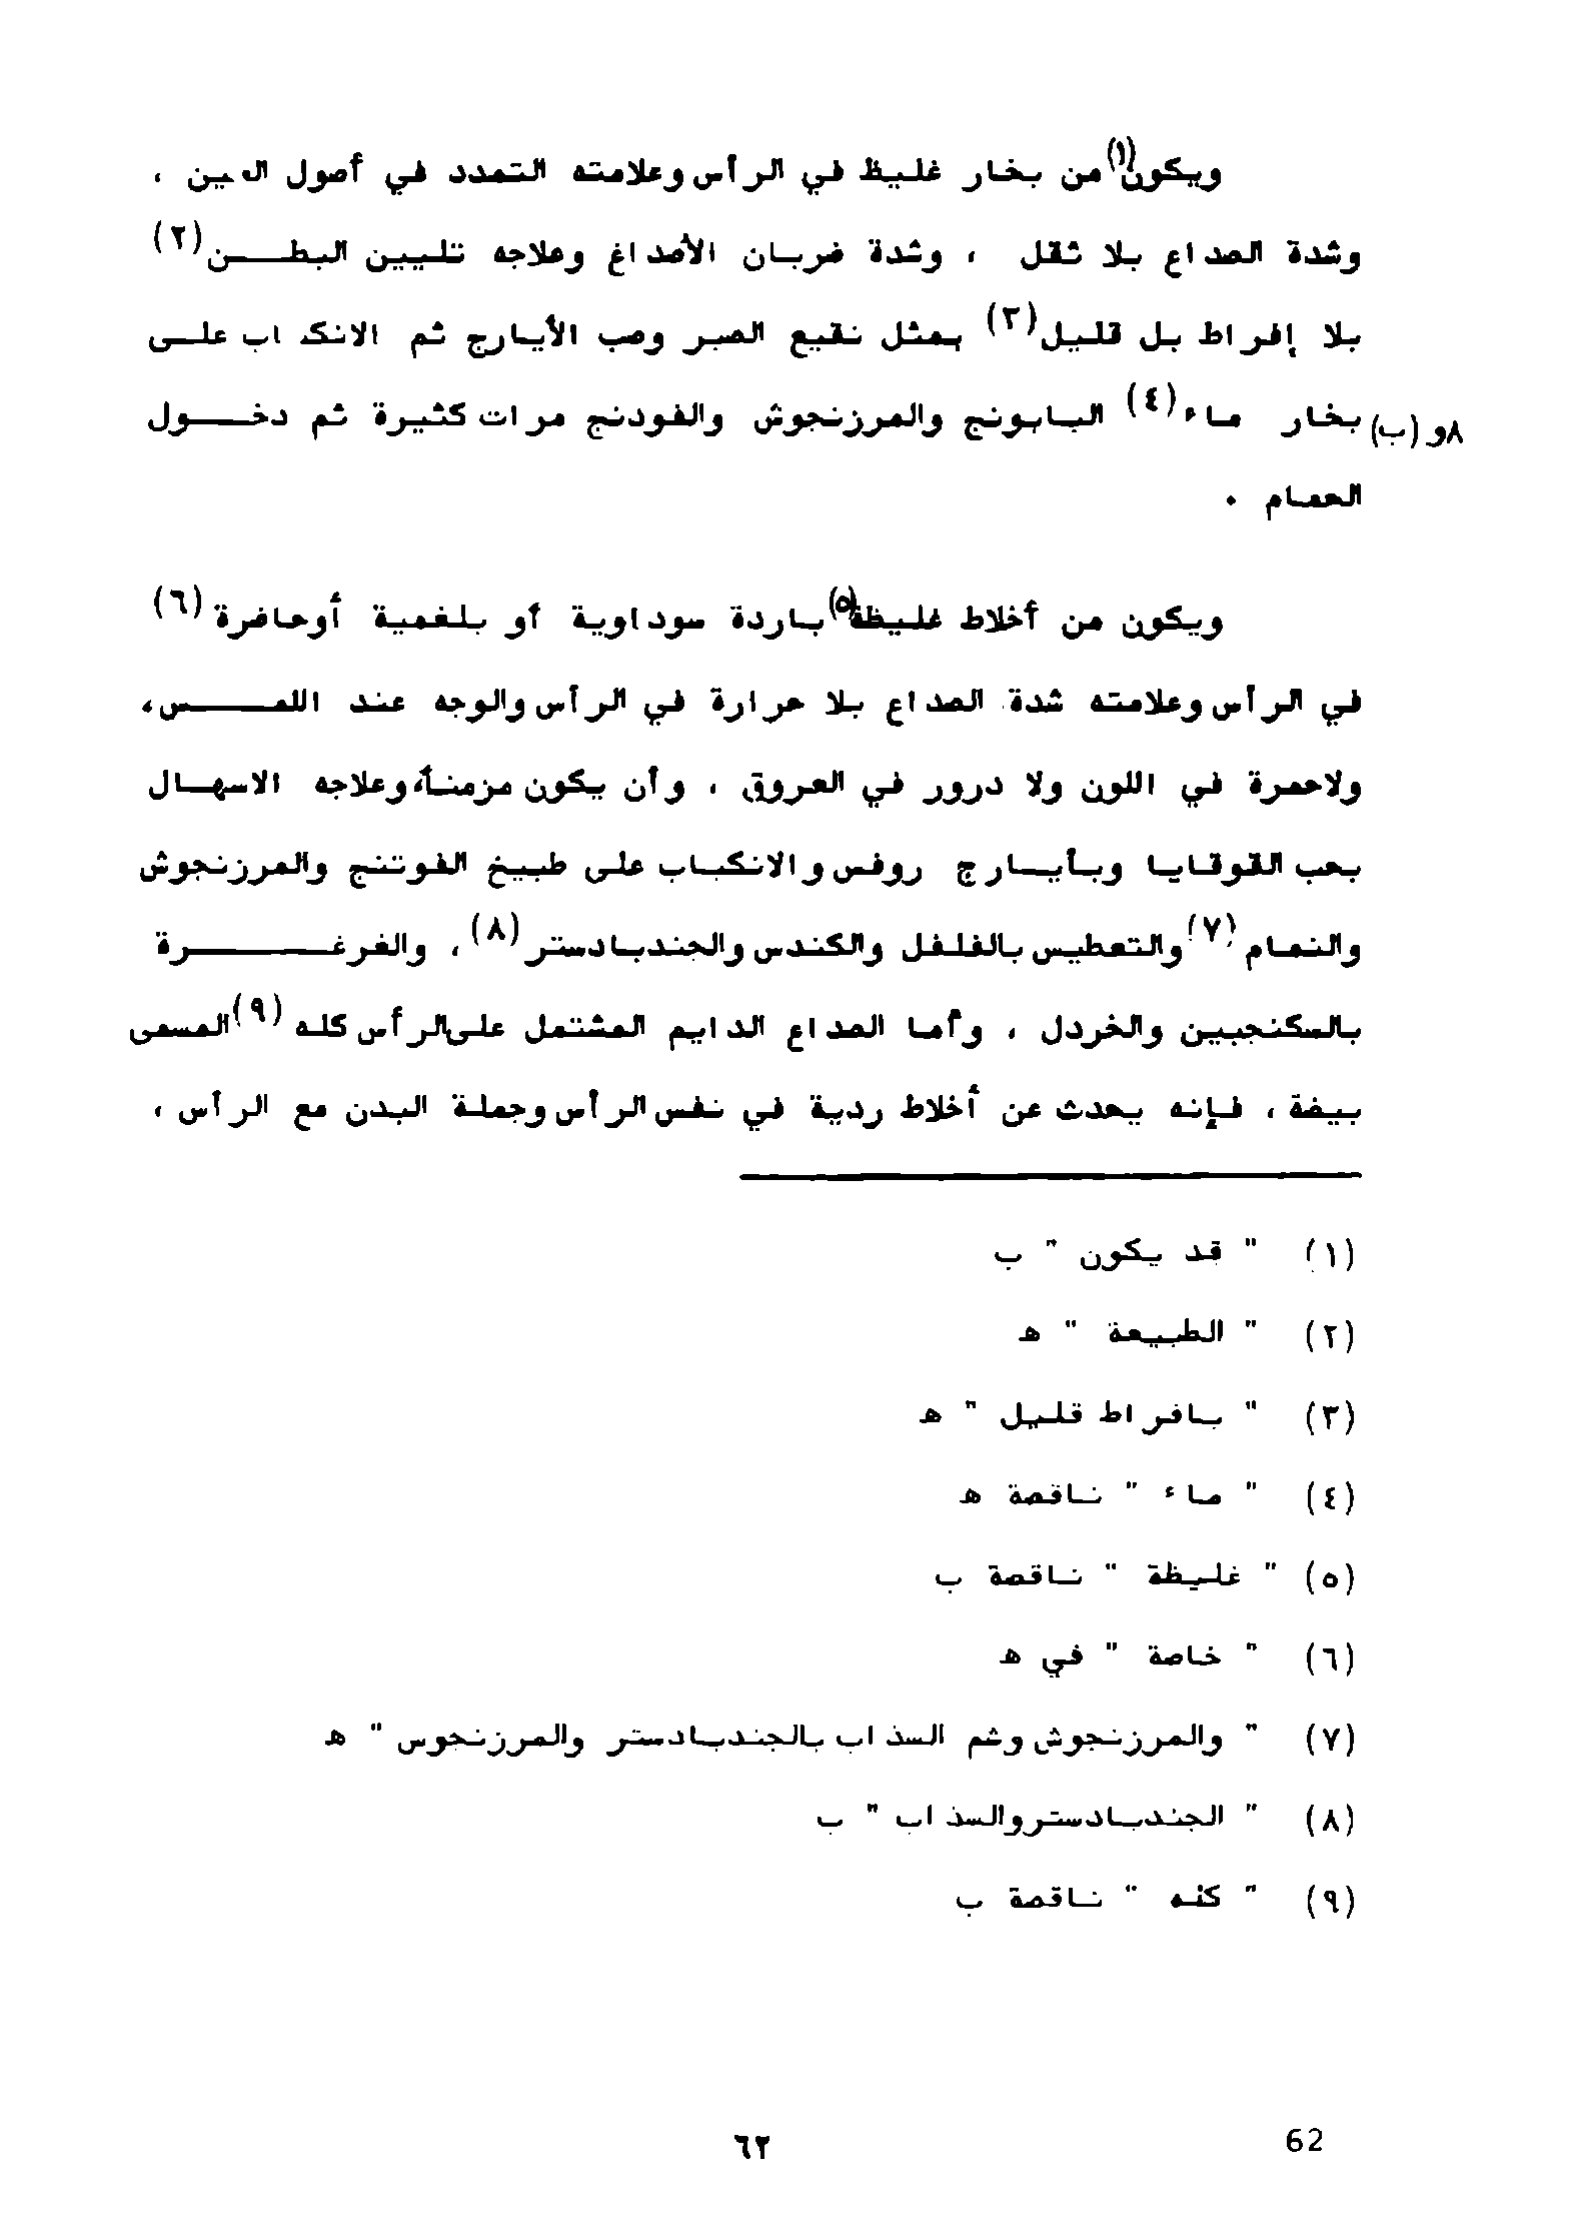 ويكون(١) من بخار غليظ في الرأس وعلامته التمدد في أصول العين ،
وشدة الصداع بلا ثقل ، وشدة ضربان الأصداغ وعلاجه تليين البطـــن(٢)
بلا إفراط بل قليل(٣) بمثل نقيع الصبر وصب الأيارج ثم الانكباب علــى
٨و(ب) بخار ماء(٤) البابونج والمرزنجوش والفودنج مرات كثيرة ثم دخــول
الحمام .
ويكون من أخلاط غليظة(٥) باردة سوداوية أو بلغمية أوحاضرة(٦)
في الرأس وعلامته شدة الصداع بلا حرارة في الرأس والوجه عند اللمـــس،
ولاحمرة في اللون ولا درور في العروق ، وأن يكون مزمنـاً، وعلاجه الاسهـال
بحب القوقايا وبأيـارج روفس والانكبـاب على طبيخ الفوتنج والمرزنجوش
والنمام(٧) والتعطيس بالفلفل والكندس والجندبادستر(٨)، والغرغـــــرة
بالسكنجبين والخردل ، وأما الصداع الدايم المشتمل على الرأس كله(٩) المسمى
بيضة ، فإنه يحدث عن أخلاط ردية في نفس الرأس وجملة البدن مع الرأس ،
(١) " قد يكون " ب
(٢) " الطبيعة " ه
(٣) " بافراط قليل " ه
(٤) " ماء " ناقصة ه
(٥) " غليظة " ناقصة ب
(٦) " خاصة " في ه
(٧) " والمرزنجوش وشم السذاب بالجندبادستر والمرزنحوس " ه
(٨) " الجندبادستروالسذاب " ب
(٩) " كله " ناقصة ب
٦٢
62